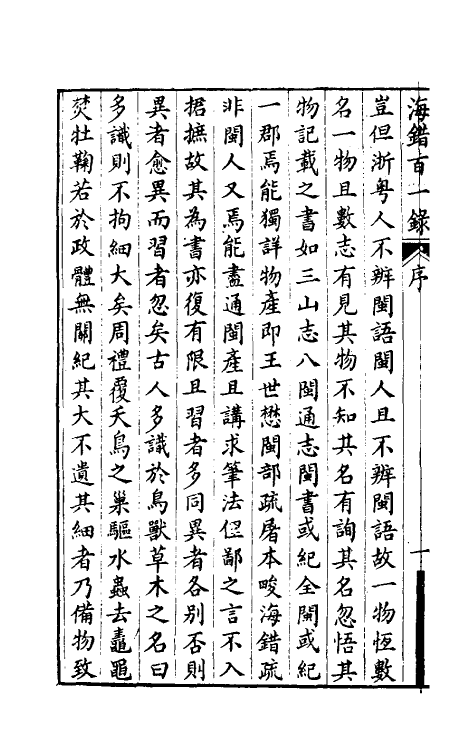 海錯百一錄 序 一
豈但浙粵人不辨閩語閩人且不辨閩語故一物恆數
名一物且數志有見其物不知其名有詢其名忽悟其
物記載之書如三山志八閩通志閩書或紀全閩或紀
一郡焉能獨詳物產即王世懋閩部疏屠本畯海錯疏
非閩人又焉能盡通閩產且講求筆法俚鄙之言不入
捃摭故其為書亦復有限且習者多同異者各別否則
異者愈異而習者忽矣古人多識於鳥獸草木之名曰
多識則不拘細大矣周禮覆夭鳥之巢驅水蟲去鼃黽
焚牡鞠若於政體無關紀其大不遺其細者乃備物致